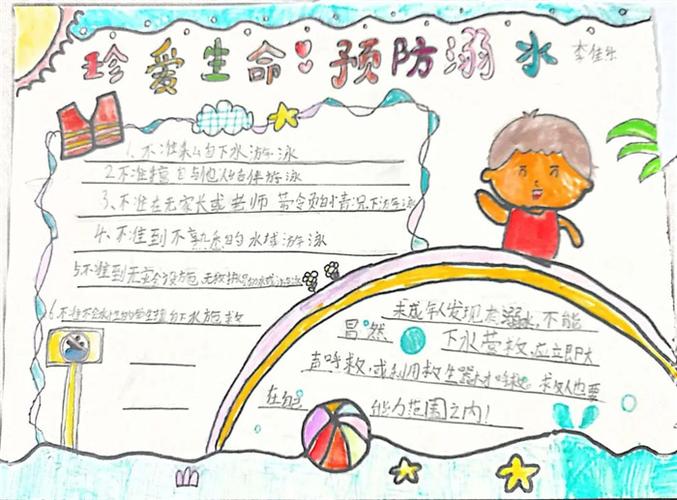 珍爱生命 预防溺水
李佳乐
1、不准私自下水游泳
2不准擅自与他人结伴游泳
3、不准在无家长或老师 带领的情况下游泳
4、不准到不熟悉的水域游泳
5不准到无安全设施、无救护的水域游泳
6不准不会水性的学生擅自下水施救
未成年人发现有溺水,不能
冒然 下水营救,应立即大
声呼救,或利用救生器材呼救。救人也要
在 能力范围之内!